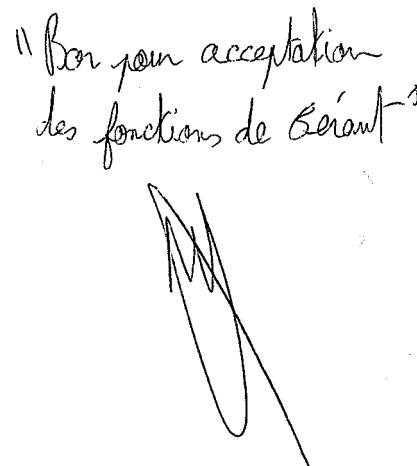 "Bon pour acceptation
des fonctions de Gérant"